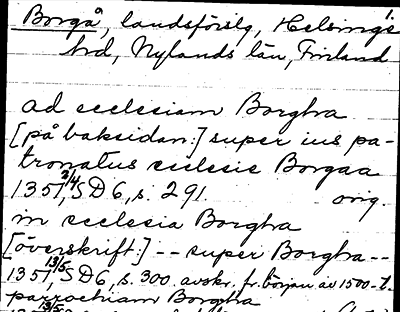 1.
Borgå, landsförslg, Helsinge
hrd, Nylands län, Finland
ad ecclesiam Borgha
[på baksidan:] super ius pa-
tronatus ecclesie Borgaa
1351 2/4, SD 6, s. 291 orig.
in ecclesia Borgha
[överskrift:] -- super Borgha --
1351 13/5, SD 6, s. 300. avskr. fr. början av 1500-t.
parrochiam Borgha
13/5